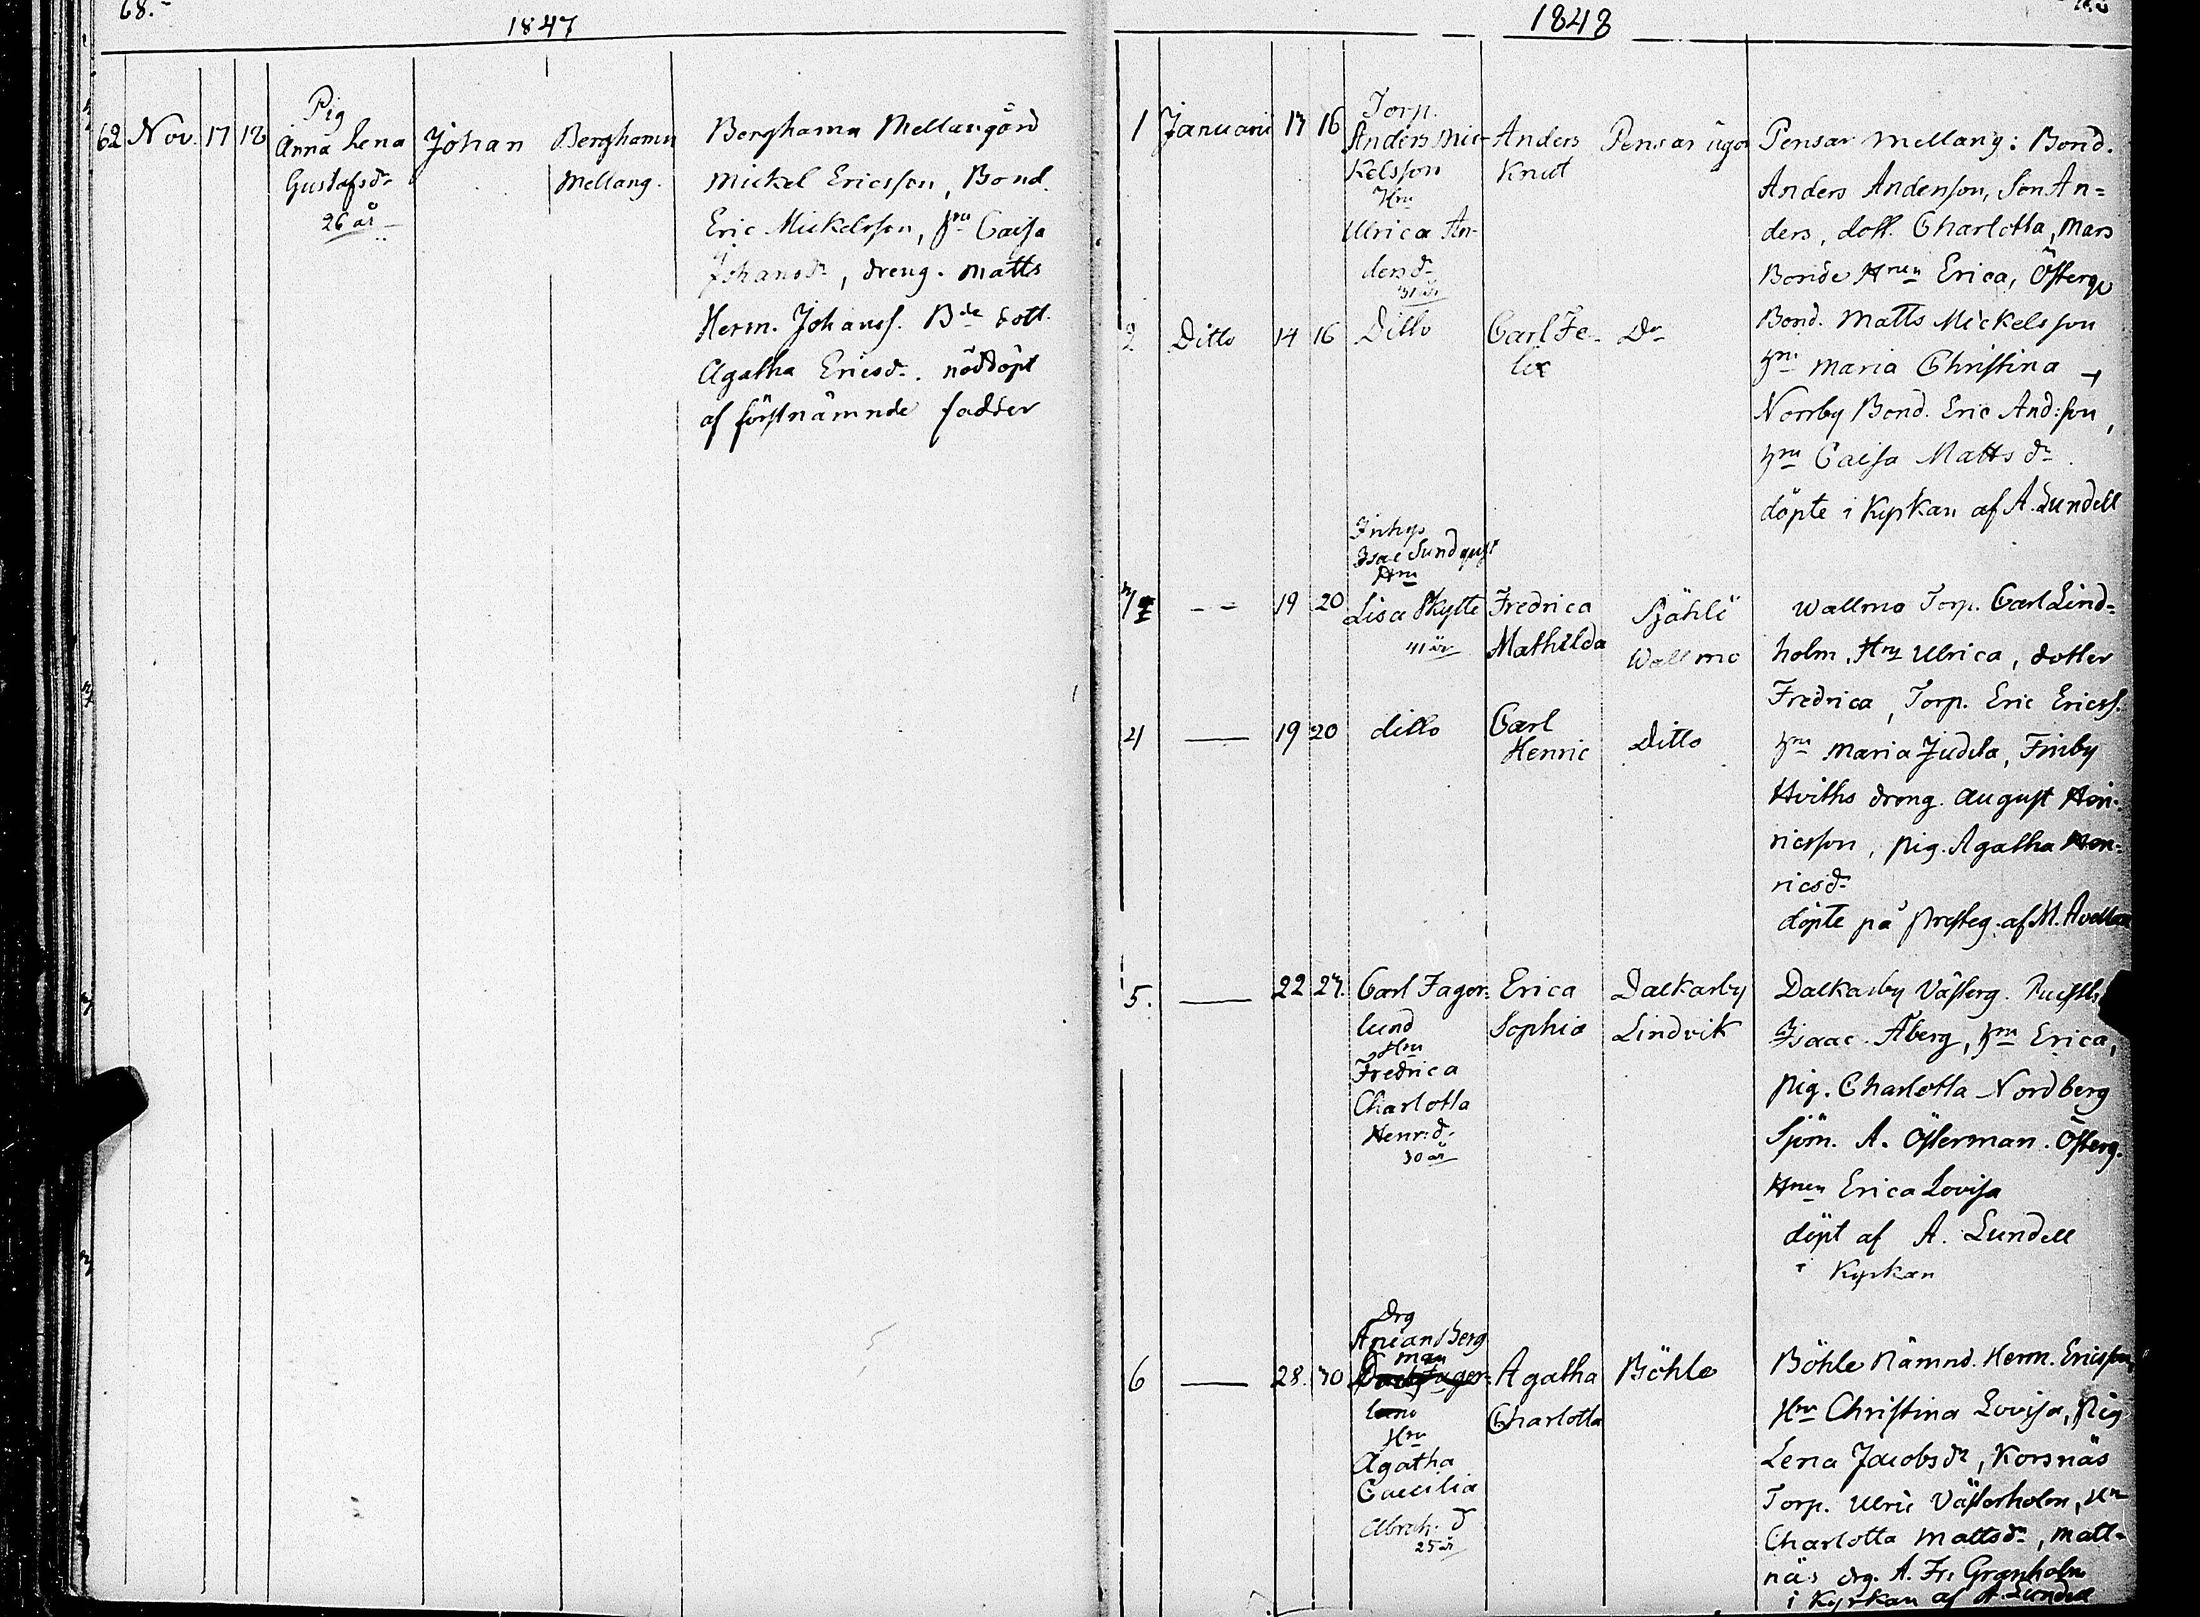 68.-
1847
62 Nov. 17 18
Pig
Anna Lena
Gustafsdr
26 år
Johan
Berghamn
Mellang.
Berghamn Mellangård
Mickel Ericsson, Bond.
Eric Mickelsson, hru Caisa
Johansdr, dreng. Matts
Herm. Johanss. Bde dott.
Agatha Ericsdr. nöddöpt
af förstnämnde fadder
1848
1 Januarii 16
Torp.
Anders Mic-
kelsson
Hru
Ulrica An-
dersdr
31 år
Anders
Knut
Pensar
Pensar Mellang: Bond.
Anders Andersson, Son An-
ders, dott. Charlotta, Mars
Bonde Hrun Erica, Österg
Bond. Matts Mickelsson
hru Maria Christina
Norrby Bond. Eric And:son,
hru Caisa Mattsdr.
döpte i Kyrkan af A. Lundell
2 Ditto 14 16 Ditto
Carl Fe-
lix
Do
Inhys
Isac Sundqvist
Hru
19 20 Lisa Skytte
41 år
Fredrica
Mathilda
Själö
Wallmo
Wallmo Torp. Carl Lind-
holm, Hru Ulrica, dotter
Fredrica, Torp. Eric Ericss.
hru Maria Judita, Finby
Hviths dreng. August Hen-
ricsson, pig. Agatha Hen-
ricsdr
döpte på presteg. af M. Avellan
4 — 19 20 ditto
Carl
Henric
Ditto
5. — 22 27.
Carl Fager-
lund
Hru
Fredrica
Charlotta
Henr:d.
30 år
Erica
Sophia
Dalkarby
Lindvik
Dalkarby Västerg.
Isaac Åberg, hru Erica,
pig. Charlotta Nordberg
Sjöm. A. Österman. Österg.
Hrun Erica Lovisa
döpt af A. Lundell
i Kyrkan
6 — 28. 30
Drg
Berg
man
lund
Hru
Agatha
Caecilia
Abrah. d
25 år
Agatha
Charlotta
Böhle
Böhle Nämnd. Herm. Ericsson,
Hru Christina Lovisa, pig
Lena Jacobsdr, Korsnäs
Torp. Ulric Västerholm, Hru
Charlotta Mattsdr, Matt-
näs drg. A. Fr. Granholm
i Kyrkan af A. Lundell